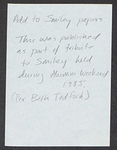 Add to Smiley papers
This was published
as part of tribute
to Smiley held
during Alumni Weekend
1985.
(Per Bess Tedford)